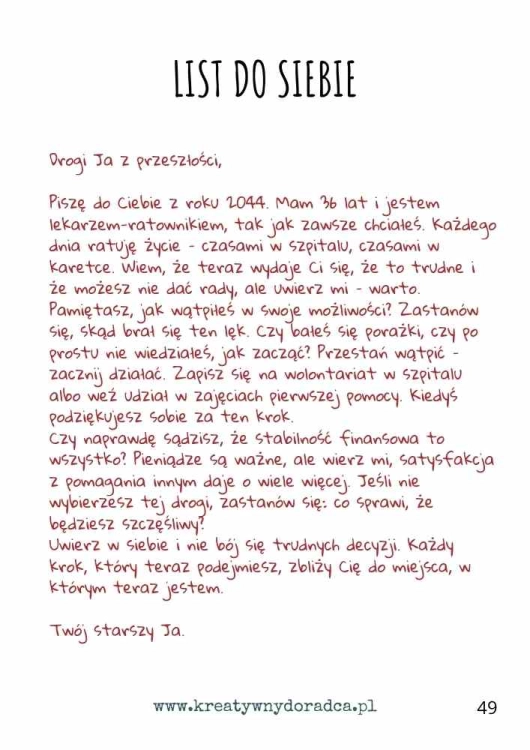 LIST DO SIEBIE
Drogi Ja z przeszłości,
Piszę do Ciebie z roku 2044. Mam 36 lat i jestem
lekarzem-ratownikiem, tak jak zawsze chciałeś. Każdego
dnia ratuję życie - czasami w szpitalu, czasami w
karetce. Wiem, że teraz wydaje Ci się, że to trudne i
że możesz nie dać rady, ale uwierz mi - warto.
Pamiętasz, jak wątpiłeś w swoje możliwości? Zastanów
się, skąd brał się ten lęk. Czy bałeś się porażki, czy po
prostu nie wiedziałeś, jak zacząć? Przestań wątpić -
zacznij działać. Zapisz się na wolontariat w szpitalu
albo weź udział w zajęciach pierwszej pomocy. Kiedyś
podziękujesz sobie za ten krok.
Czy naprawdę sądzisz, że stabilność finansowa to
wszystko? Pieniądze są ważne, ale wierz mi, satysfakcja
z pomagania innym daje o wiele więcej. Jeśli nie
wybierzesz tej drogi, zastanów się: co sprawi, że
będziesz szczęśliwy?
Uwierz w siebie i nie bój się trudnych decyzji. Każdy
krok, który teraz podejmiesz, zbliży Cię do miejsca, w
którym teraz jestem.
Twój starszy Ja.
www.kreatywnydoradca.pl
49